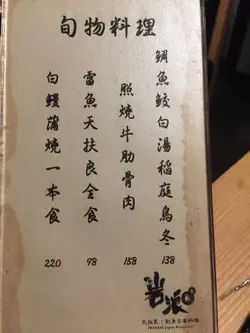 旬物料理
鯛魚鮫白湯稻庭烏冬
138
照燒牛肋骨肉
158
雷魚天扶良全食
98
白鰻蒲燒一本食
220
岩浪